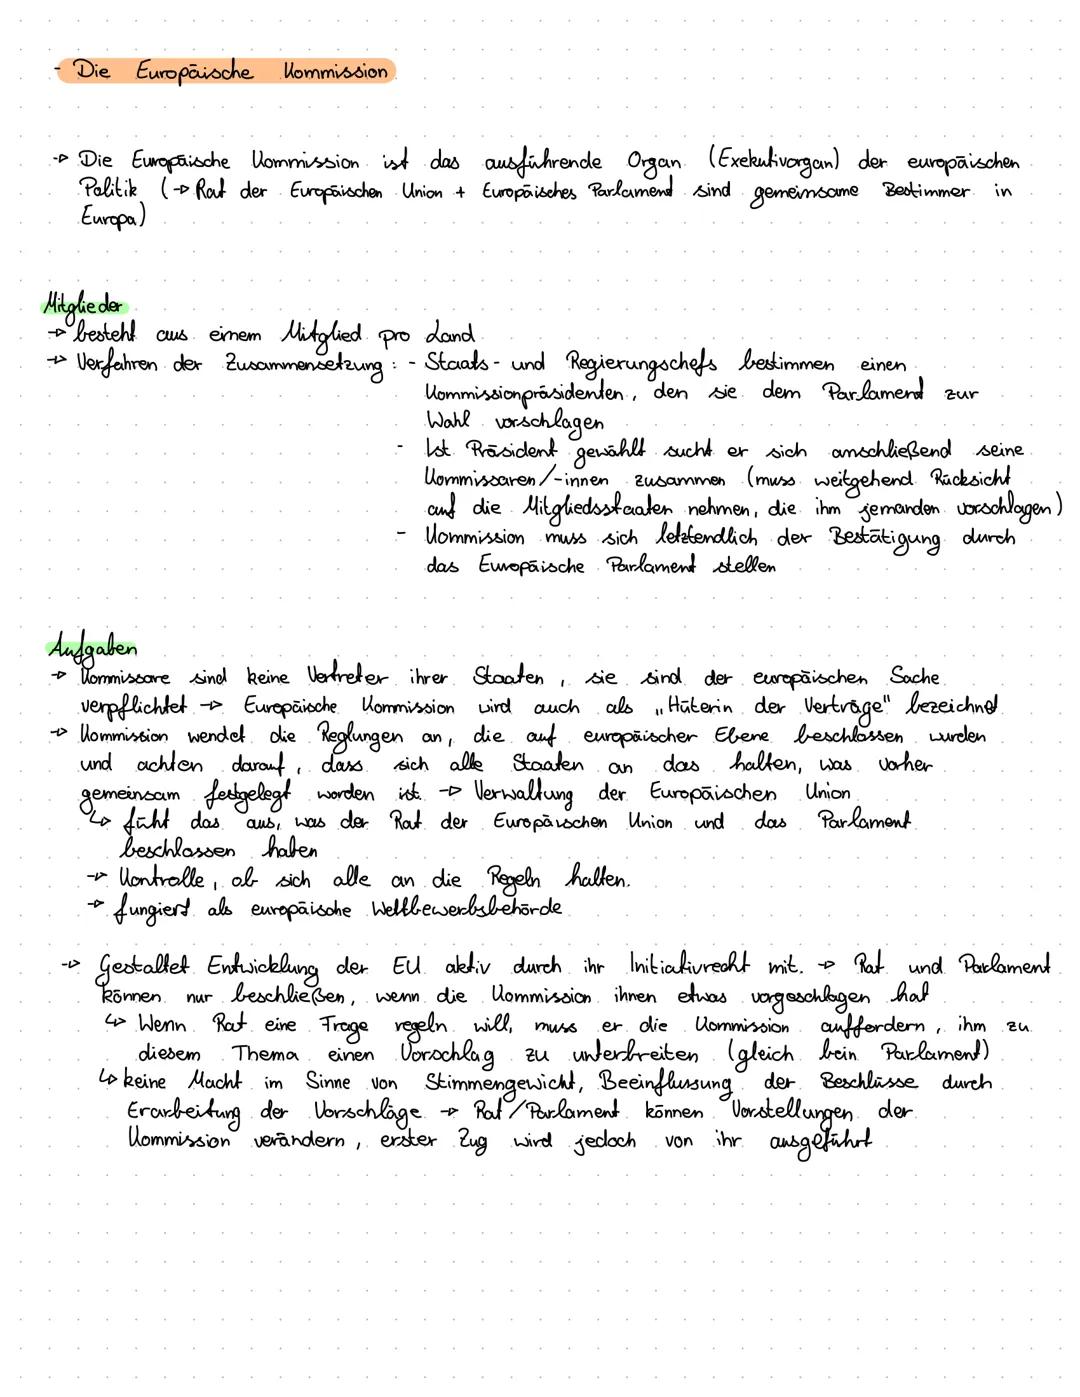 - Die Europäische Kommission
-> Die Europäische Kommission ist das ausführende Organ (Exekutivorgan) der europäischen
Politik (-> Rat der Europäischen Union + Europäisches Parlament sind gemeinsame Bestimmer in
Europa)
Mitglieder
-> besteht aus einem Mitglied pro Land
-> Verfahren der Zusammensetzung : - Staats- und Regierungschefs bestimmen einen
Kommissionpräsidenten, den sie dem Parlament zur
Wahl vorschlagen
- Ist Präsident gewählt sucht er sich anschließend seine
Kommissaren/-innen zusammen (muss weitgehend Rücksicht
auf die Mitgliedsstaaten nehmen, die ihm jemanden vorschlagen)
- Kommission muss sich letztendlich der Bestätigung durch
das Europäische Parlament stellen
Aufgaben
-> Kommissare sind keine Vertreter ihrer Staaten, sie sind der europäischen Sache
verpflichtet -> Europäische Kommission wird auch als „Hüterin der Verträge" bezeichnet
-> Kommission wendet die Reglungen an, die auf europäischer Ebene beschlossen wurden
und achten darauf, dass sich alle Staaten an das halten, was vorher
gemeinsam festgelegt worden ist. -> Verwaltung der Europäischen Union
↳ führt das aus, was der Rat der Europäischen Union und das Parlament
beschlossen haben
-> Kontrolle, ob sich alle an die Regeln halten.
-> fungiert als europäische Wettbewerbsbehörde
-> Gestaltet Entwicklung der EU aktiv durch ihr Initiativrecht mit. -> Rat und Parlament
können nur beschließen, wenn die Kommission ihnen etwas vorgeschlagen hat
↳ Wenn Rat eine Frage regeln will, muss er die Kommission auffordern, ihm zu
diesem Thema einen Vorschlag zu unterbreiten (gleich bein Parlament)
↳ keine Macht im Sinne von Stimmengewicht, Beeinflussung der Beschlüsse durch
Erarbeitung der Vorschläge -> Rat/Parlament können Vorstellungen der
Kommission verändern, erster Zug wird jedoch von ihr ausgeführt